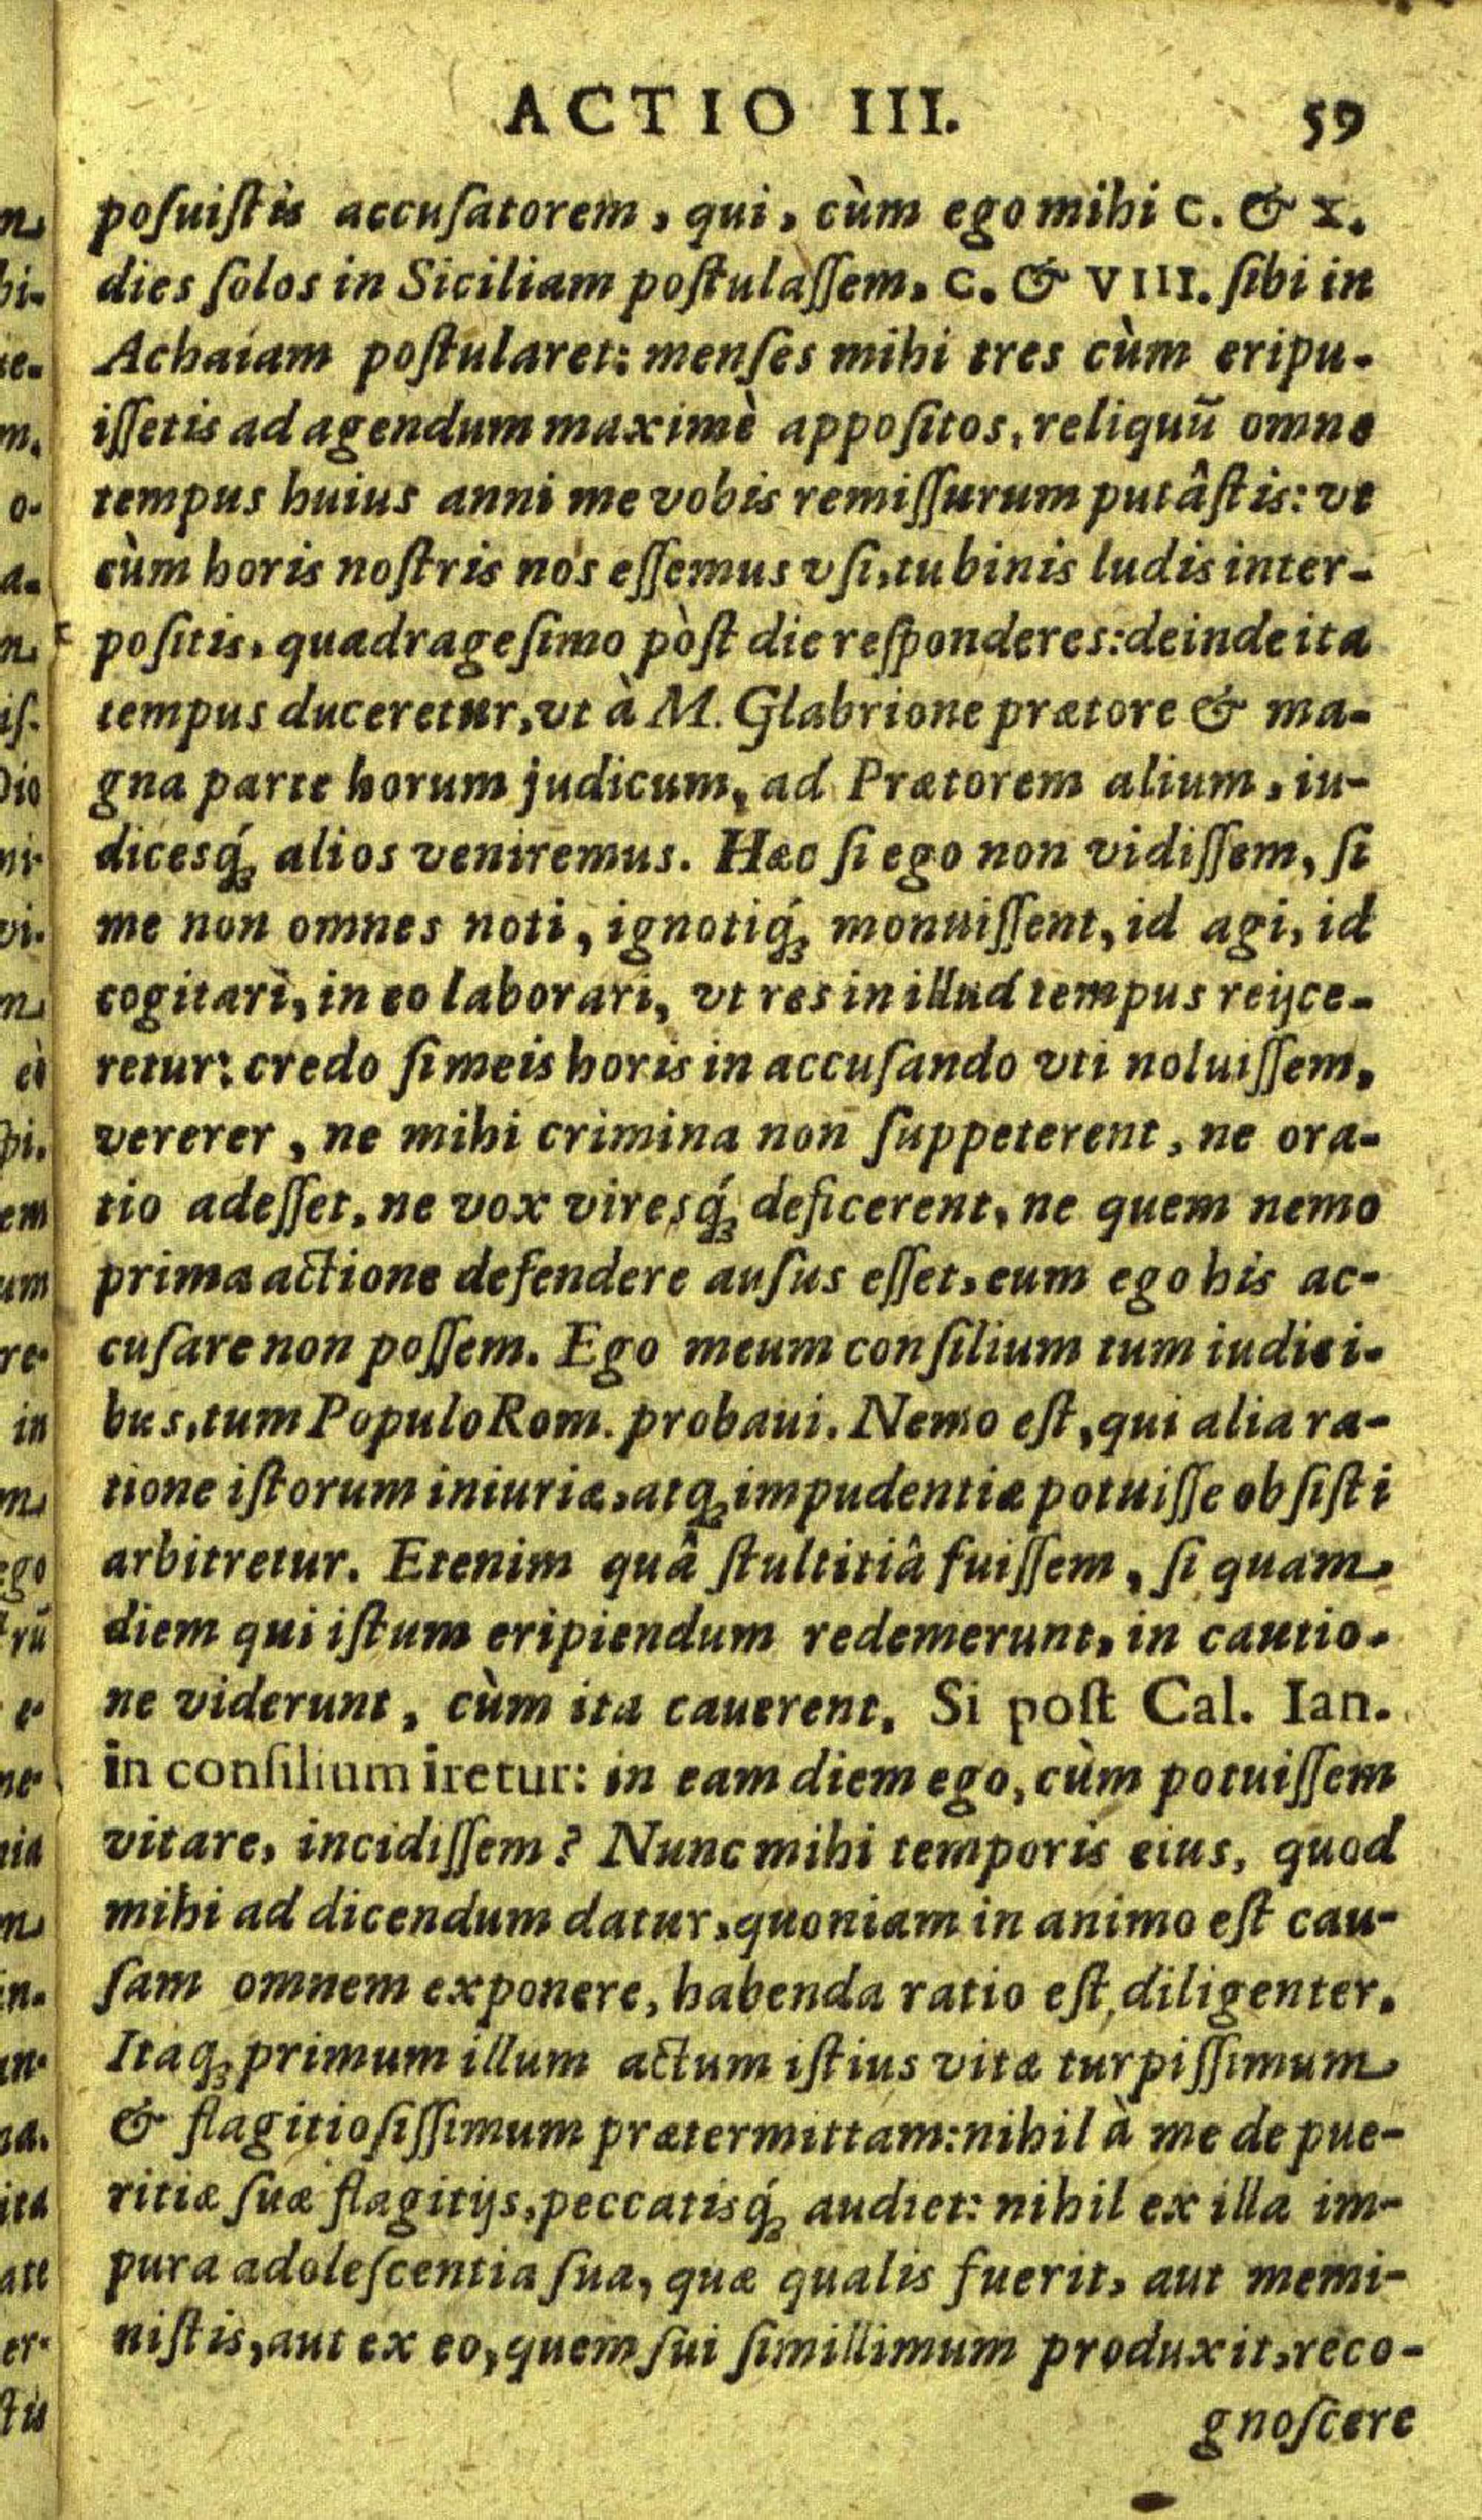 ACTIO III. 59
poſuiſtis accuſatorem, qui, cùm ego mihi C. & X.
dies ſolos in Siciliam poſtulaſſem, C. & VIII. ſibi in
Achaiam poſtularet: menſes mihi tres cùm eripu-
iſſetis ad agendum maximè appoſitos, reliquũ omne
tempus huius anni me vobis remiſſurum putâſtis: vt
cùm horis noſtris nos eſſemus vſi, tu binis ludis inter-
poſitis, quadrageſimo pòſt die reſponderes: deinde ita
tempus duceretur, vt à M. Glabrione prætore & ma-
gna parte horum judicum, ad Prætorem alium, iu-
dicesq́; alios veniremus. Hæc ſi ego non vidiſſem, ſi
me non omnes noti, ignotiq́; monuiſſent, id agi, id
cogitari, in eo laborari, vt res in illud tempus reijce-
retur: credo ſi meis horis in accuſando vti noluiſſem,
vererer, ne mihi crimina non ſuppeterent, ne ora-
tio adeſſet, ne vox viresq́; deficerent, ne quem nemo
prima actione defendere auſus eſſet, eum ego his ac-
cuſare non poſſem. Ego meum conſilium tum iudici-
bus, tum Populo Rom. probaui. Nemo eſt, qui alia ra-
tione iſtorum iniuriæ, atq; impudentiæ potuiſſe obſiſti
arbitretur. Etenim quâ ſtultitiâ fuiſſem, ſi quam
diem qui iſtum eripiendum redemerunt, in cautio-
ne viderunt, cùm ita cauerent, Si poſt Cal. Ian.
in conſilium iretur: in eam diem ego, cùm potuiſſem
vitare, incidiſſem? Nunc mihi temporis eius, quod
mihi ad dicendum datur, quoniam in animo eſt cau-
ſam omnem exponere, habenda ratio eſt diligenter.
Itaq; primum illum actum iſtius vitæ turpiſſimum
& flagitioſiſſimum prætermittam: nihil à me de pue-
ritiæ ſuæ flagitijs, peccatisq́; audiet: nihil ex illa im-
pura adoleſcentia ſua, quæ qualis fuerit, aut memi-
niſtis, aut ex eo, quem ſui ſimillimum produxit, reco-
gnoſcere